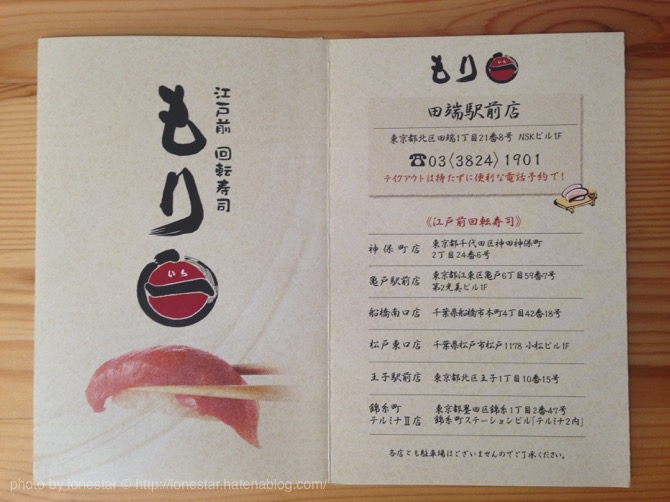 江戸前 回転寿司
もり
いち
一
もり
一
田端駅前店
東京都北区田端1丁目21番8号 NSKビル1F
☎03〈3824〉1901
テイクアウトは待たずに便利な電話予約で!
《江戸前回転寿司》
神保町店 東京都千代田区神田神保町
2丁目24番6号
亀戸駅前店 東京都江東区亀戸6丁目59番7号
第2光真ビル1F
船橋南口店 千葉県船橋市本町4丁目42番18号
松戸東口店 千葉県松戸市松戸1178 小松ビル1F
王子駅前店 東京都北区王子1丁目10番15号
錦糸町 東京都墨田区錦糸1丁目2番47号
テルミナⅡ店 錦糸町ステーションビル「テルミナ2内」
各店とも駐車場はございませんのでご了承ください。
photo by lonestar © http://lonestar.hatenablog.com/